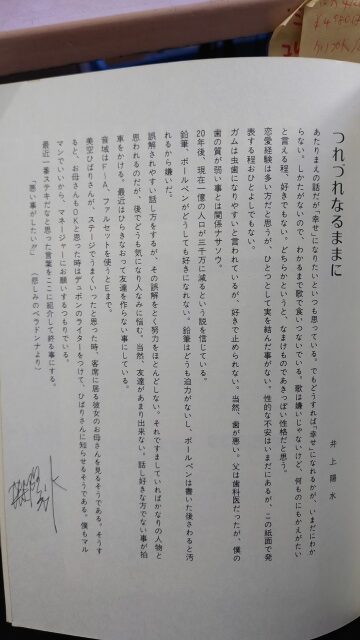 つれづれなるままに
井上陽水
あたりまえの話だが“幸せ”になりたいといつも思っている。でもどうすれば“幸せ”になれるかが、いまだにわか
らない。しかたがないので、わかるまで歌で食いつないでいる。歌は嫌いじゃないけど、何ものにもかえがたい
と言える程、好きでもない。どちらかというと、なまけものであきっぽい性格だと思う。
恋愛経験は多い方だと思うが、ひとつとして実を結んだ事がない。性的な不安はいまだにあるが、この紙面で発
表する程おひとよしでもない。
ガムは虫歯になりやすいと言われているが、好きで止められない。当然、歯が悪い。父は歯科医だったが、僕の
歯の質が弱い事とは関係ナサソウ。
20年後、現在一億の人口が三千万に減るという説を信じている。
鉛筆、ボールペンがどうしても好きになれない。鉛筆はどうも迫力がないし、ボールペンは書いた後さわると汚
れるから嫌いだ。
誤解されやすい話し方をするが、その誤解をとく努力をほとんどしない。それですましていればかなりの人物と
思われるのだが、後でどうも気になり人なみに悩む。当然、友達があまり出来ない。話し好きな方でない事が拍
車をかける。最近はひらきなおって友達を作らない事にしている。
音域はF〜A、ファルセットを使うとEまで
美空ひばりさんが、ステージでうまくいったと思った時、客席に居る彼女のお母さんを見るそうである。そうす
ると、お母さんもOKと思った時はデュポンのライターをつけて、ひばりさんに知らせるそうである。僕もマル
マンでいいから、マネージャーにお願いするつもりでいる。
最近一番ステキだなと思った言葉をここに紹介して終る事にする。
「悪い事がしたい!!」　（悲しみのベラドンナより）